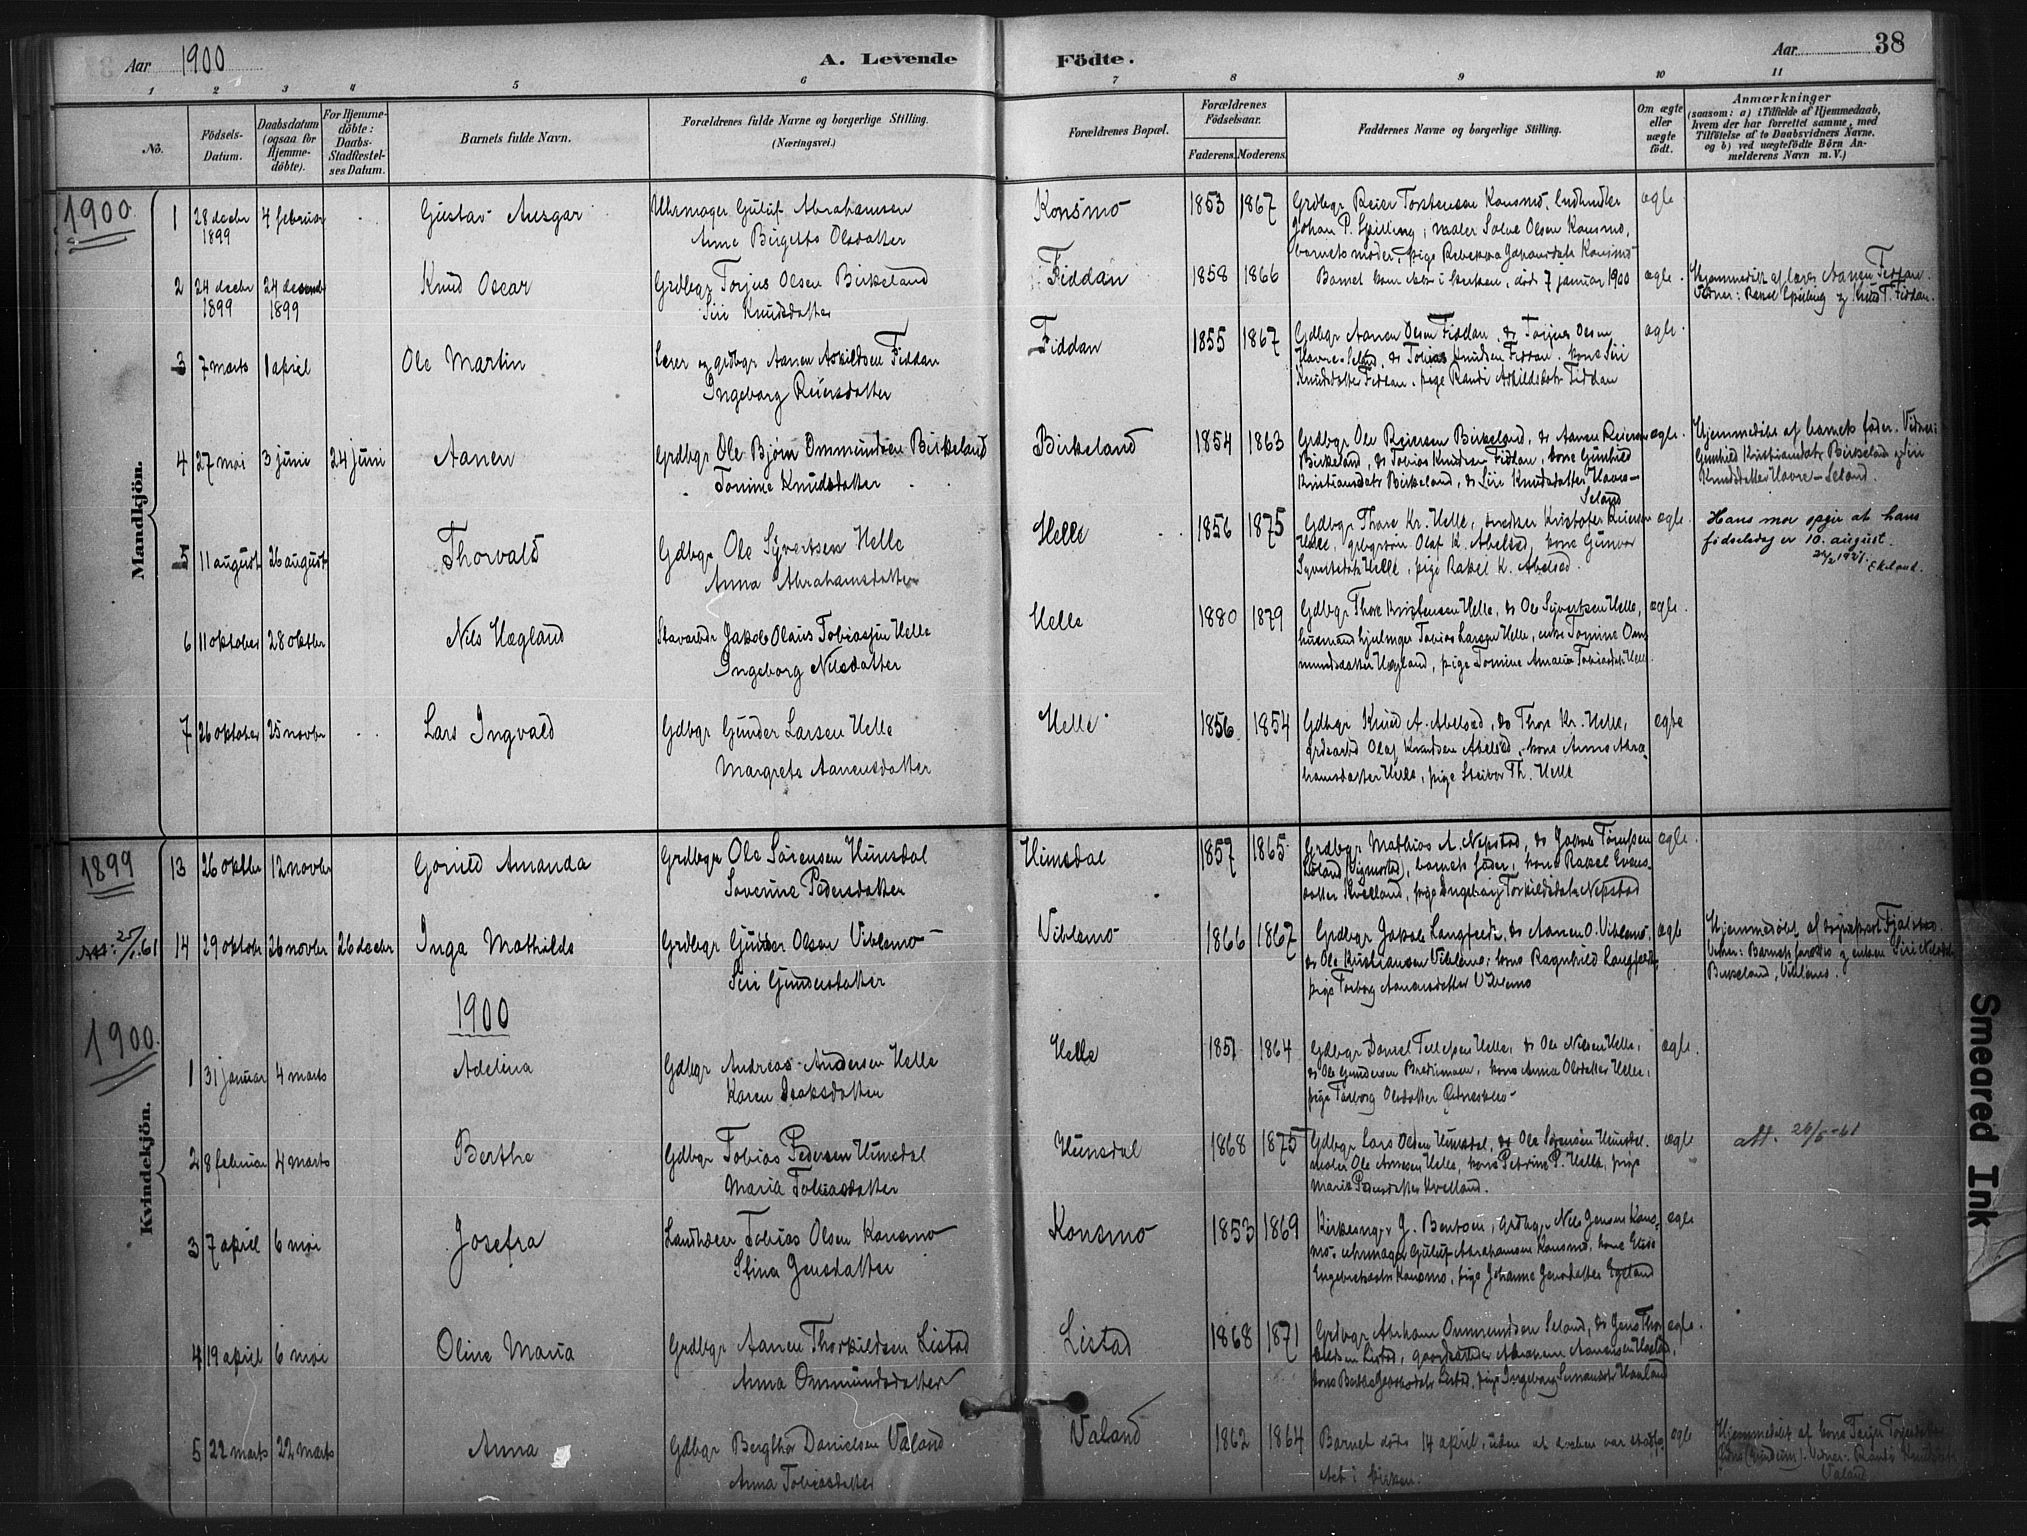 Aar 1900
A. Levende Födte.
Aar 38
1 2 3 4 5 6 7 8 9 10 11
No.
Födsels-Datum.
Daabsdatum (ogsaa for Hjemme-döbte).
For Hjemme-döbte: Daabs-Stadfæstel-ses Datum.
Barnets fulde Navn.
Forældrenes fulde Navne og borgerlige Stilling. (Næringsvei.)
Forældrenes Bopæl.
Forældrenes Födselsaar.
Faderens. Moderens.
Faddernes Navne og borgerlige Stilling.
Om ægte eller uægte födt.
Anmærkninger
(saasom: a) i Tilfælde af Hjemmedaab, hvem der har forrettet samme, med Tilföielse af to Daabsvidners Navne, og b) ved uægtefödte Börn An-melderens Navn m.V.)
Mandkjön.
1900
1 28 decbr 1899 4 februar Gustav Ansgar
Uhrmager Guluf Abrahamsen
Anne Birgitte Olsdatter
Konsmo 1853 1867
Grdbgr Reier Torstensen Konsmo, Johan P. Spilling, maler Salve Olsen Konsmo, barnets moder, pige Rebekka Konsmo
ægte
2 24 decbr 1899 24 decemb 1899 Knud Oscar
Grdbgr Torjus Olsen Birkeland
Siri Knudsdatter
Fiddan 1858 1866
Barnet kom ikke i kirken, död 7 januar 1900
ægte.
Hjemmedöbt af lærer Aanen Fiddan. Vidner: Rakel Spilling og Knud T. Fiddan.
3 7 marts 1 april Ole Martin
Lærer og grdbgr Aanen Askildsen Fiddan
Ingeborg Reiersdatter
Fiddan 1855 1867
Gdbgr Aanen Olsen Fiddan, do Torjus Olsen Havre-Seland, do Tobias Knudsen Fiddan, kone Siri Knudsdatter Fiddan, pige Randi Askildsdtr Fiddan
ægte.
4 27 mai 3 juni 24 juni Aanen
Grdbgr Ole Björn Ommundsen Birkeland
Tomine Knudsdatter
Birkeland 1854 1863
Grdbgr Ole Reiersen Birkeland, do Aanen Reiersen Birkeland, do Tobias Knudsen Fiddan, kone Gunhild Kristiansdatr Birkeland, do Siri Knudsdatter Havre-Seland
ægte.
Hjemmedöbt af barnets fader. Vidner: Gunhild Kristiansdatr Birkeland og Siri Knudsdatter Havre-Seland.
5 11 august 26 august Thorvald
Gdbgr Ole Syvertsen Helle
Anna Abrahamsdatter
Helle 1856 1875
Gdbgr Thore Kr. Helle, snedker Kristofer Reiersen Helle, grbgrsön Olaf K. Abelsed, kone Gunvor Syvertsdatr Helle, pige Rakel K. Abelsed.
ægte
Hans mor opgir at hans födselsdag er 10. august.
Ekeland.
6 11 oktober 28 oktbr Nils Hægland
Jakob Olaus Tobiassen Helle
Ingeborg Nilsdatter
Helle 1880 1879
Gdbgr Thore Kristensen Helle, do Ole Syvertsen Helle, husmand hjulmager Tobias Larsen Helle, enke Tomine Ommundsdatter Hægland, pige Tomine Amalia Tobiasdtr Helle.
ægte.
7 26 oktober 25 novbr Lars Ingvald
Gdbgr Gunder Larsen Helle
Margrete Aanensdatter
Helle 1856 1854
Gdbgr Knud A. Abelsed, do Thore Kr. Helle, Olaf Knudsen Abelsed, kone Anna Abrahamsdatter Helle, pige Steivor Th. Helle
ægte
Kvindekjön.
1899
13 26 oktbr 12 novbr Gonild Amanda
Grdbgr Ole Sörensen Hunsdal
Severine Pedersdatter
Hunsdal 1857 1865
Grdbgr Mathias A. Nepstad, do Jakob, barnets fader, kone Rakel Evensdatter Kvelland, pige Ingeborg Torkildsdatr Nepstad
ægte.
14 29 oktobr 26 novbr 26 decbr Inga Mathilde
Grdbgr Gunder Olsen Viblemo
Siri Gundersdatter
Viblemo 1866 1867
Grdbgr Jakob Langfeldt, do Aanen O. Viblemo, do Ole Kristiansen Viblemo, kone Ragnhild Langfeldt, pige Torborg Aanensdatter Viblemo
ægte
Hjemmedöbt af sogneprest Fjalstad. Vidner: Barnets forældre og enken Siri Birkeland, Viblemo.
1900
1900
1 31 januar 4 marts Adelina
Gdbgr Andreas Andersen Helle
Karen Isaksdatter
Helle 1851 1864
Gdbgr Daniel Tellefsen Helle, do Ole Nilsen Helle, do Ole Gundersen, kone Anna Olsdatter Helle, pige Torborg Olsdatter
ægte.
2 8 februar 4 marts Berthe
Gdbgr Tobias Pedersen Hunsdal
Maria Tobiasdatter
Hunsdal 1868 1875
Gdbgr Lars Olsen Hunsdal, do Ole Sörensen Hunsdal, maler Ole Arnesen Helle, kone Petrine P. Helle, pige Marie Pedersdatter Kvelland.
ægte
att. 26/5-61
3 7 april 6 mai Josefa
Tobias Olsen Konsmo
Stina Jensdatter
Konsmo 1853 1869
Kirkesanger J. Bentsen, grdbgr Nils Jensen Konsmo, uhrmager Guluf Abrahamsen Konsmo, kone Konsmo, pige Johanne Jensdatter Egeland
ægte
4 19 april 6 mai Oline Maria
Grdbgr Aanen Thorkildsen Listad
Anna Ommundsdatter
Listad 1868 1871
Grdbgr Abraham Ommundsen Seland, do Jens Thorkildsen Listad, kone Berthe Listad, pige Ingeborg
ægte.
5 22 marts 22 marts Anna
Gdbgr Bergthor Danielsen Valand
Anna Tobiasdatter
Valand 1862 1864
Barnet döde 14 april, uden at daaben var stadfæstet i kirken.
ægte
Hjemmedöbt af kone. Vidner: Randi Valand
Smeared Ink